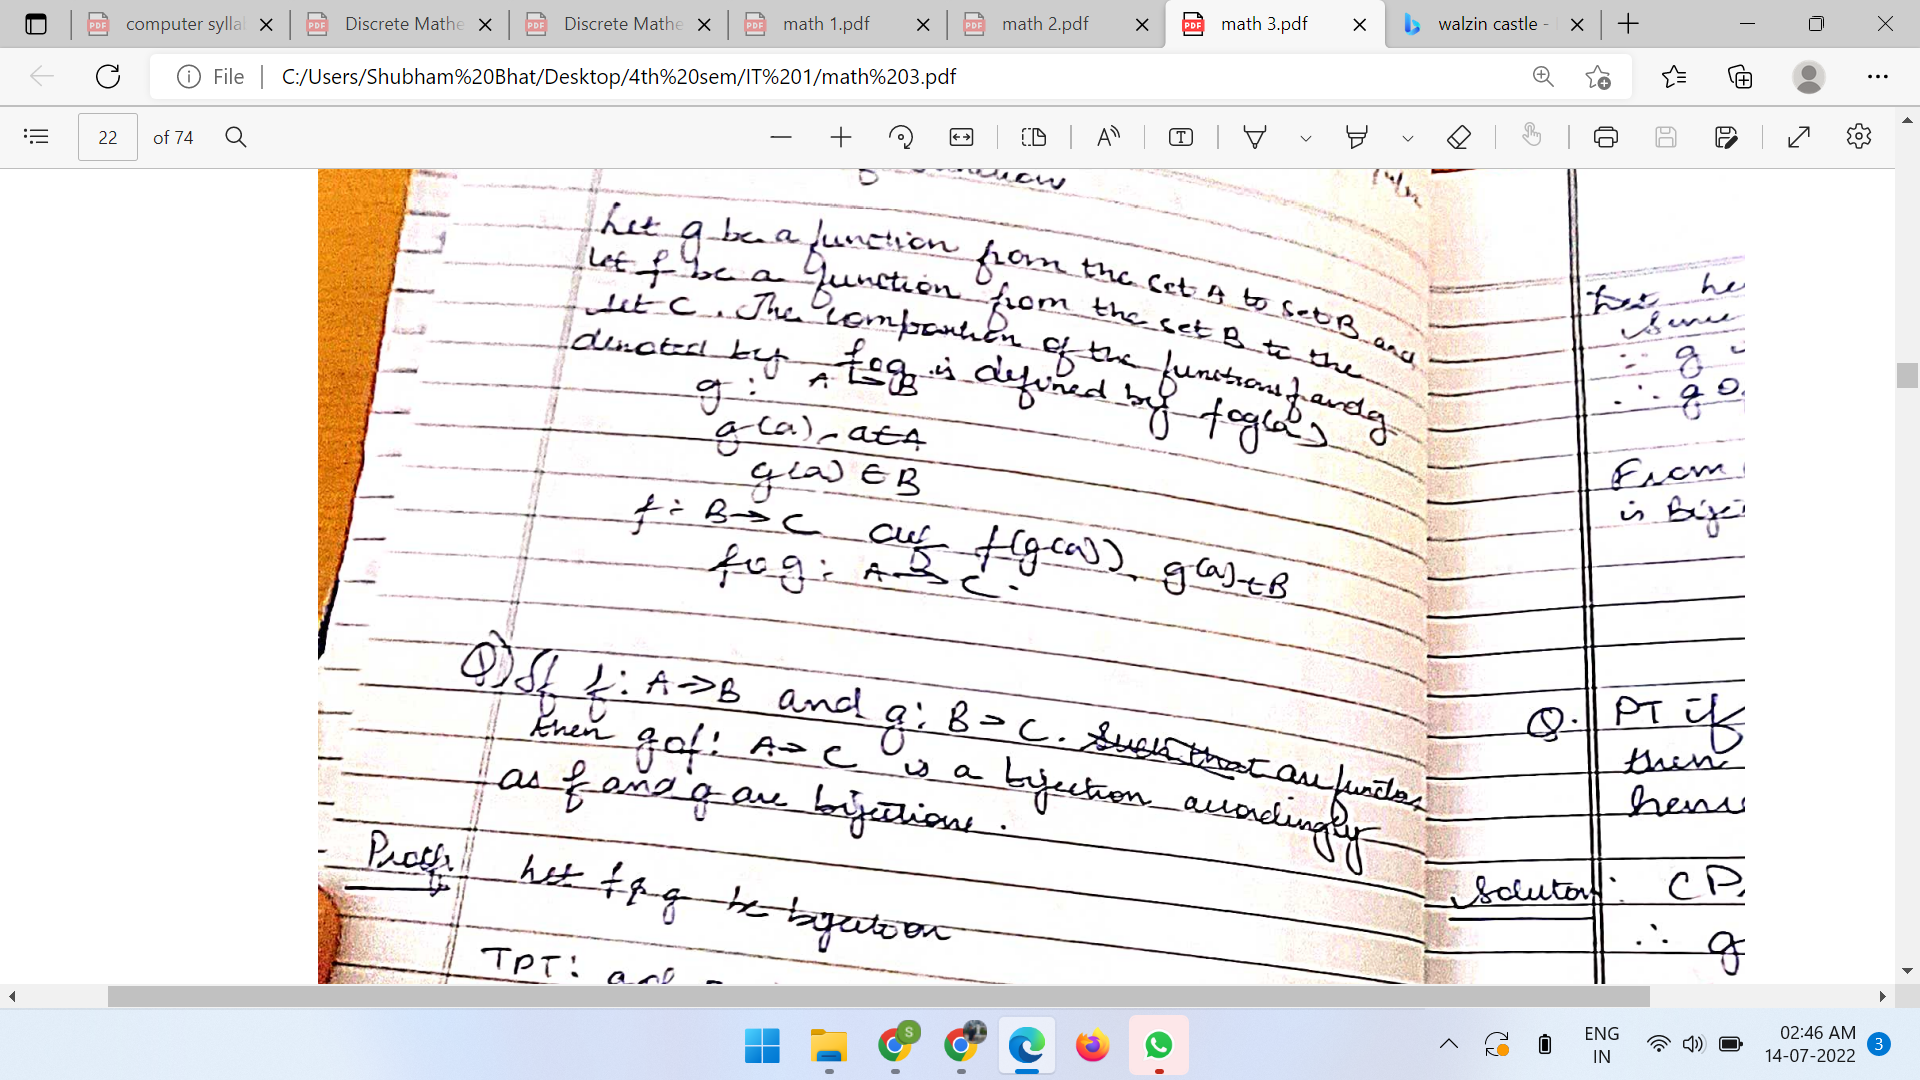 computer sylla
Discrete Mathe
Discrete Mathe
math 1.pdf
math 2.pdf
math 3.pdf
walzin castle -
File
C:/Users/Shubham%20Bhat/Desktop/4th%20sem/IT%201/math%203.pdf
22 of 74
Let g be a function from the set A to set B and
let f be a function from the set B to the
set C. The composition of the functions f and g
denoted by fog is defined by fog(a)
g: A → B
g(a), a∈A
g(a) ∈ B
f: B→C f(g(a)), g(a)∈B
fog: A→C.
Q) If f: A→B and g: B→C. are functions
then gof: A→C is a bijection accordingly
as f and g are bijections.
Proof: Let f & g be bijection
TPT: gof
Let he
Since
∴ g
∴ g o
From
is Bije
Q. PT if
then
hence
Solution:
∴ g
ENG
IN
02:46 AM
14-07-2022
3